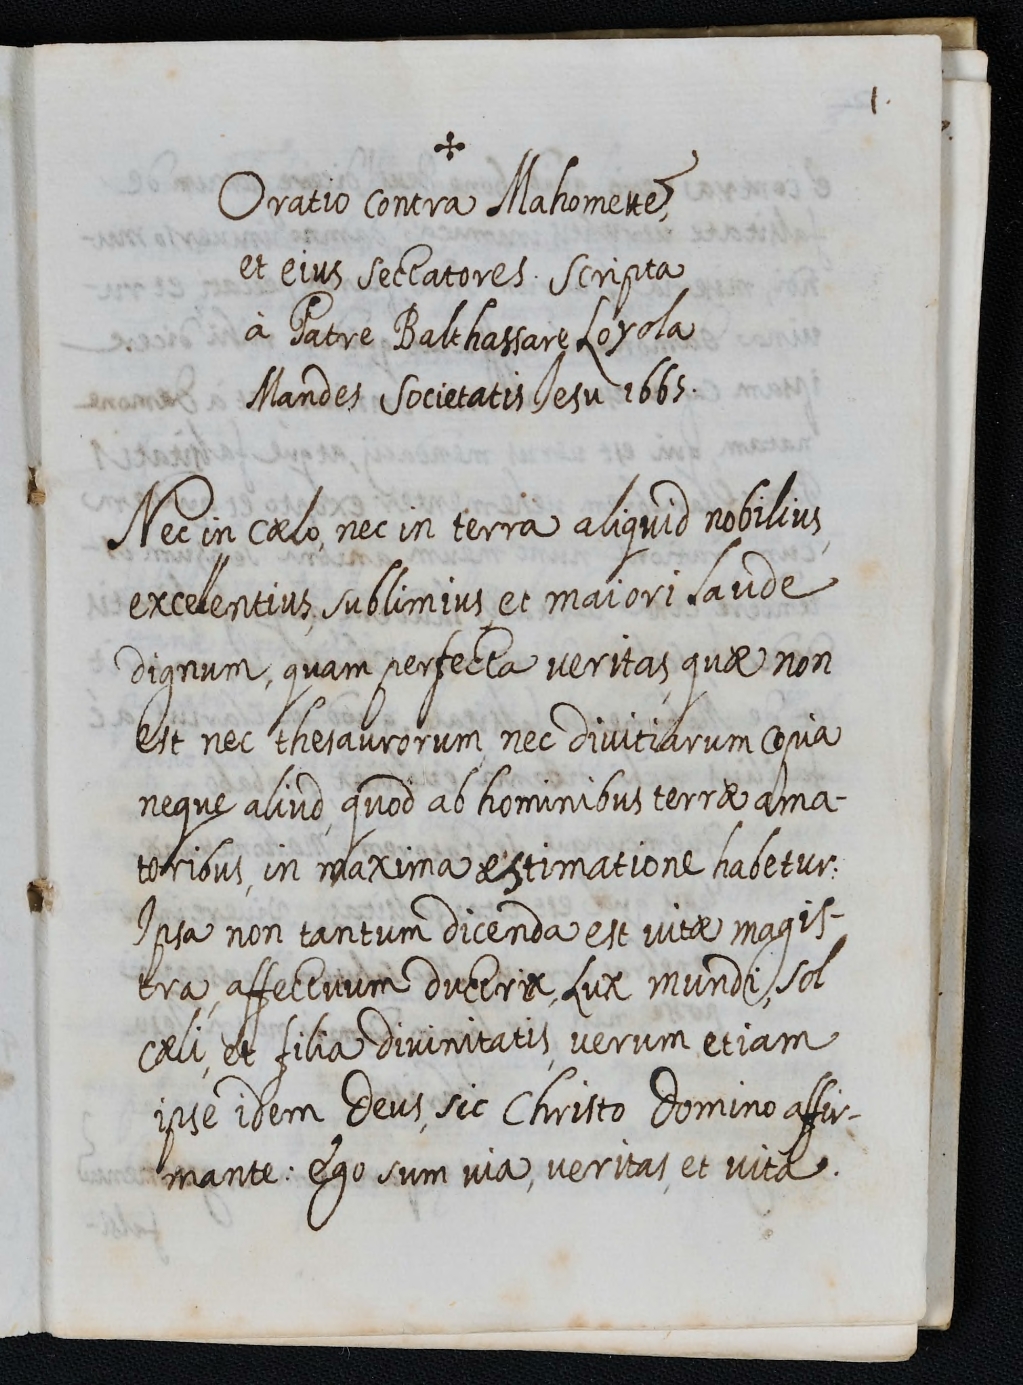 1.
✢
Oratio contra Mahomette,
et eius seccatores. Scripta
à Patre Balthassare Loyola
Mandes Societatis Jesu 1665.
Nec in cœlo, nec in terra aliquid nobilius,
excellentius, sublimius, et maiori laude
dignum, quam perfecta veritas, quæ non
est nec thesaurorum, nec divitiarum copia
neque aliud, quod ab hominibus terræ ama-
toribus, in maxima æstimatione habetur:
Ipsa non tantum dicenda est vitæ magis-
tra, affectuum ductrix, Lux mundi, sol
cœli, et filia divinitatis, verum etiam
ipse idem Deus, sic Christo Domino affir-
mante: Ego sum via, veritas, et vita.